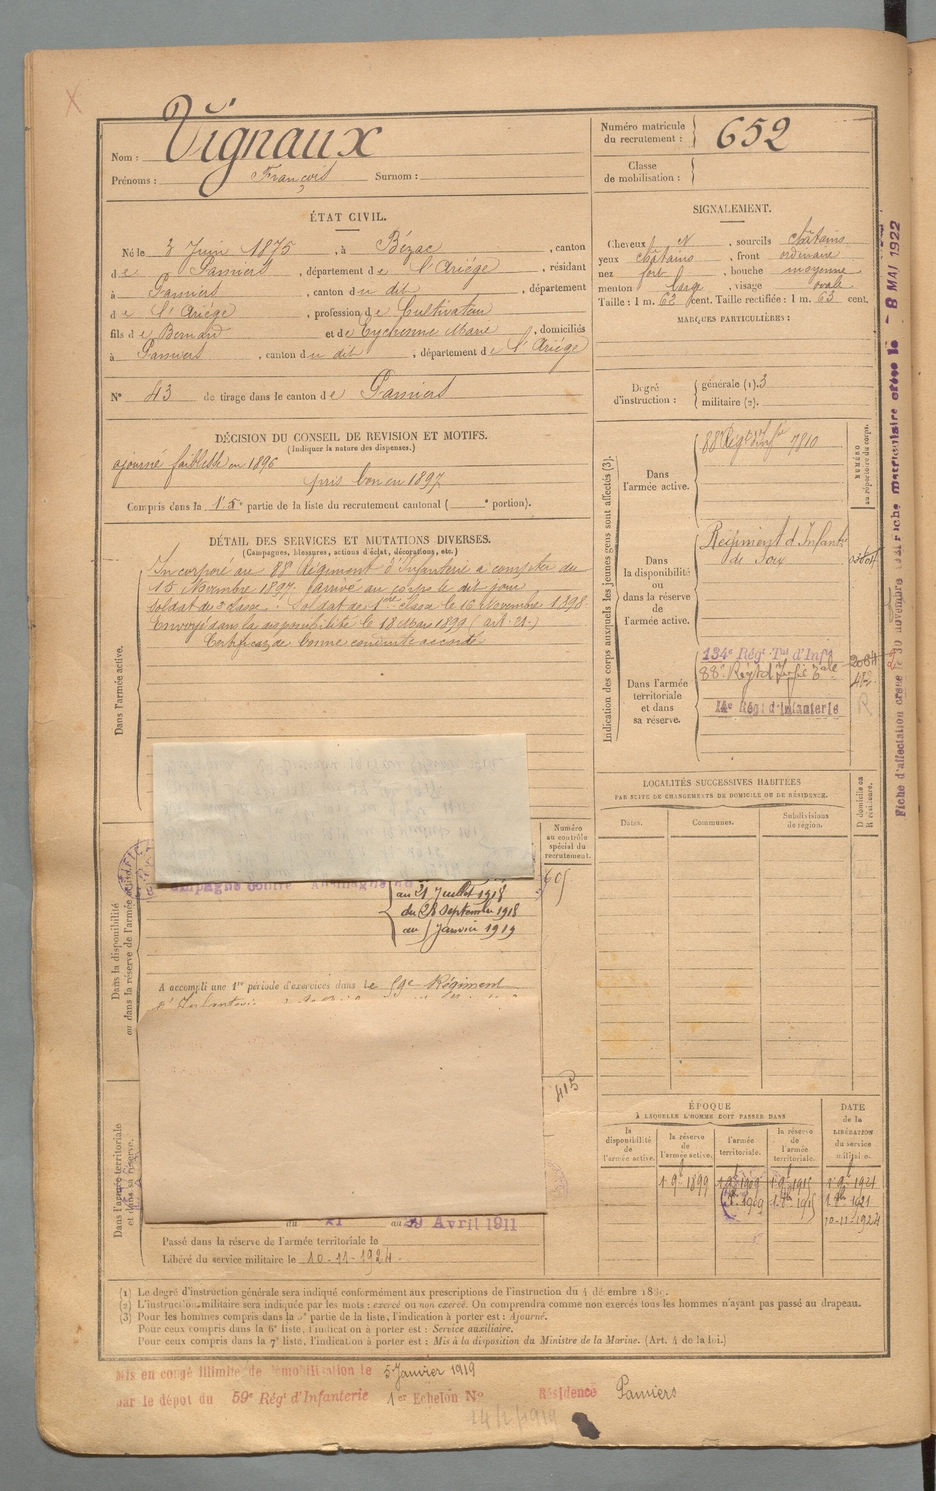 Nom : Vignaux
Prénoms : François Surnom :
Numéro matricule
du recrutement : 652
Classe
de mobilisation :
ÉTAT CIVIL.
Né le 3 Juin 1875, à Bézac, canton
de Pamiers, département de l'Ariége, résidant
à Pamiers, canton du dit, département
de l'Ariége, profession de Cultivateur
fils de Bernard et de Eychenne Marie, domiciliés
à Pamiers, canton du dit, département de l'Ariége
N° 43 de tirage dans le canton de Pamiers
SIGNALEMENT.
Cheveux N, sourcils châtains
yeux châtains, front ordinaire
nez fort, bouche moyenne
menton large, visage ovale
Taille : 1 m. 62 cent. Taille rectifiée : 1 m. 63 cent.
MARQUES PARTICULIÈRES :
Degré
d'instruction :
générale (1). 3
militaire (2).
DÉCISION DU CONSEIL DE REVISION ET MOTIFS.
(Indiquer la nature des dispenses.)
ajourné faiblesse en 1896
pris bon en 1897
Compris dans la partie de la liste du recrutement cantonal ( e portion).
DÉTAIL DES SERVICES ET MUTATIONS DIVERSES.
(Campagnes, blessures, actions d'éclat, décorations, etc.)
Dans l'armée active.
Incorporé au 88e Régiment d'Infanterie à compter du
15 Novembre 1897, arrivé au corps le dit jour
soldat de 2e classe. Soldat de 1ère classe le 16 Novembre 1898
Envoyé dans la disponibilité le 18 Mars 1899 (art. 21.)
Certificat de bonne conduite accordé
Indication des corps auxquels les jeunes gens sont affectés (3).
NUMÉRO
au répertoire du corps.
Dans
l'armée active.
88e Régt d'Infie 7810
Dans
la disponibilité
ou
dans la réserve
de
l'armée active.
Régiment d'Infantie
de
Dans l'armée
territoriale
et dans
sa réserve.
134e Régt Tal d'Infie
88e Régt d'Infie
14e Régt d'Infanterie
R
Fiche d'affectation
Fiche matriculaire
8 MAI 1922
LOCALITÉS SUCCESSIVES HABITÉES
PAR SUITE DE CHANGEMENTS DE DOMICILE OU DE RÉSIDENCE.
D domicile ou
R résidence.
Dates.
Communes.
Subdivisions
de région.
Numéro
au contrôle
spécial du
recrutement.
605
Dans la disponibilité
ou dans la réserve de l'armée active.
Campagne contre l'Allemagne du
au 21 Juillet 1918
du 28 Septembre 1918
au 5 Janvier 1919
A accompli une 1re période d'exercices dans le 59e Régiment
415
Dans l'armée territoriale
et dans sa réserve.
du au Avril 1911
Passé dans la réserve de l'armée territoriale le
Libéré du service militaire le 10-11-1924.
ÉPOQUE
À LAQUELLE L'HOMME DOIT PASSER DANS
DATE
de la
LIBÉRATION
du service
militaire.
la
disponibilité
de
l'armée active.
la réserve
de
l'armée active.
l'armée
territoriale.
la réserve
de
l'armée
territoriale.
1 9 1899
10-11-1924
(1) Le degré d'instruction générale sera indiqué conformément aux prescriptions de l'instruction du 4 décembre 1889.
(2) L'instruction militaire sera indiquée par les mots : exercé ou non exercé. On comprendra comme non exercés tous les hommes n'ayant pas passé au drapeau.
(3) Pour les hommes compris dans la 5e partie de la liste, l'indication à porter est : Ajourné.
Pour ceux compris dans la 6e liste, l'indication à porter est : Service auxiliaire.
Pour ceux compris dans la 7e liste, l'indication à porter est : Mis à la disposition du Ministre de la Marine. (Art. 4 de la loi.)
Mis en congé illimité de démobilisation le 5 Janvier 1919
par le dépôt du 59e Régt d'Infanterie 1er Echelon N° Résidence Pamiers